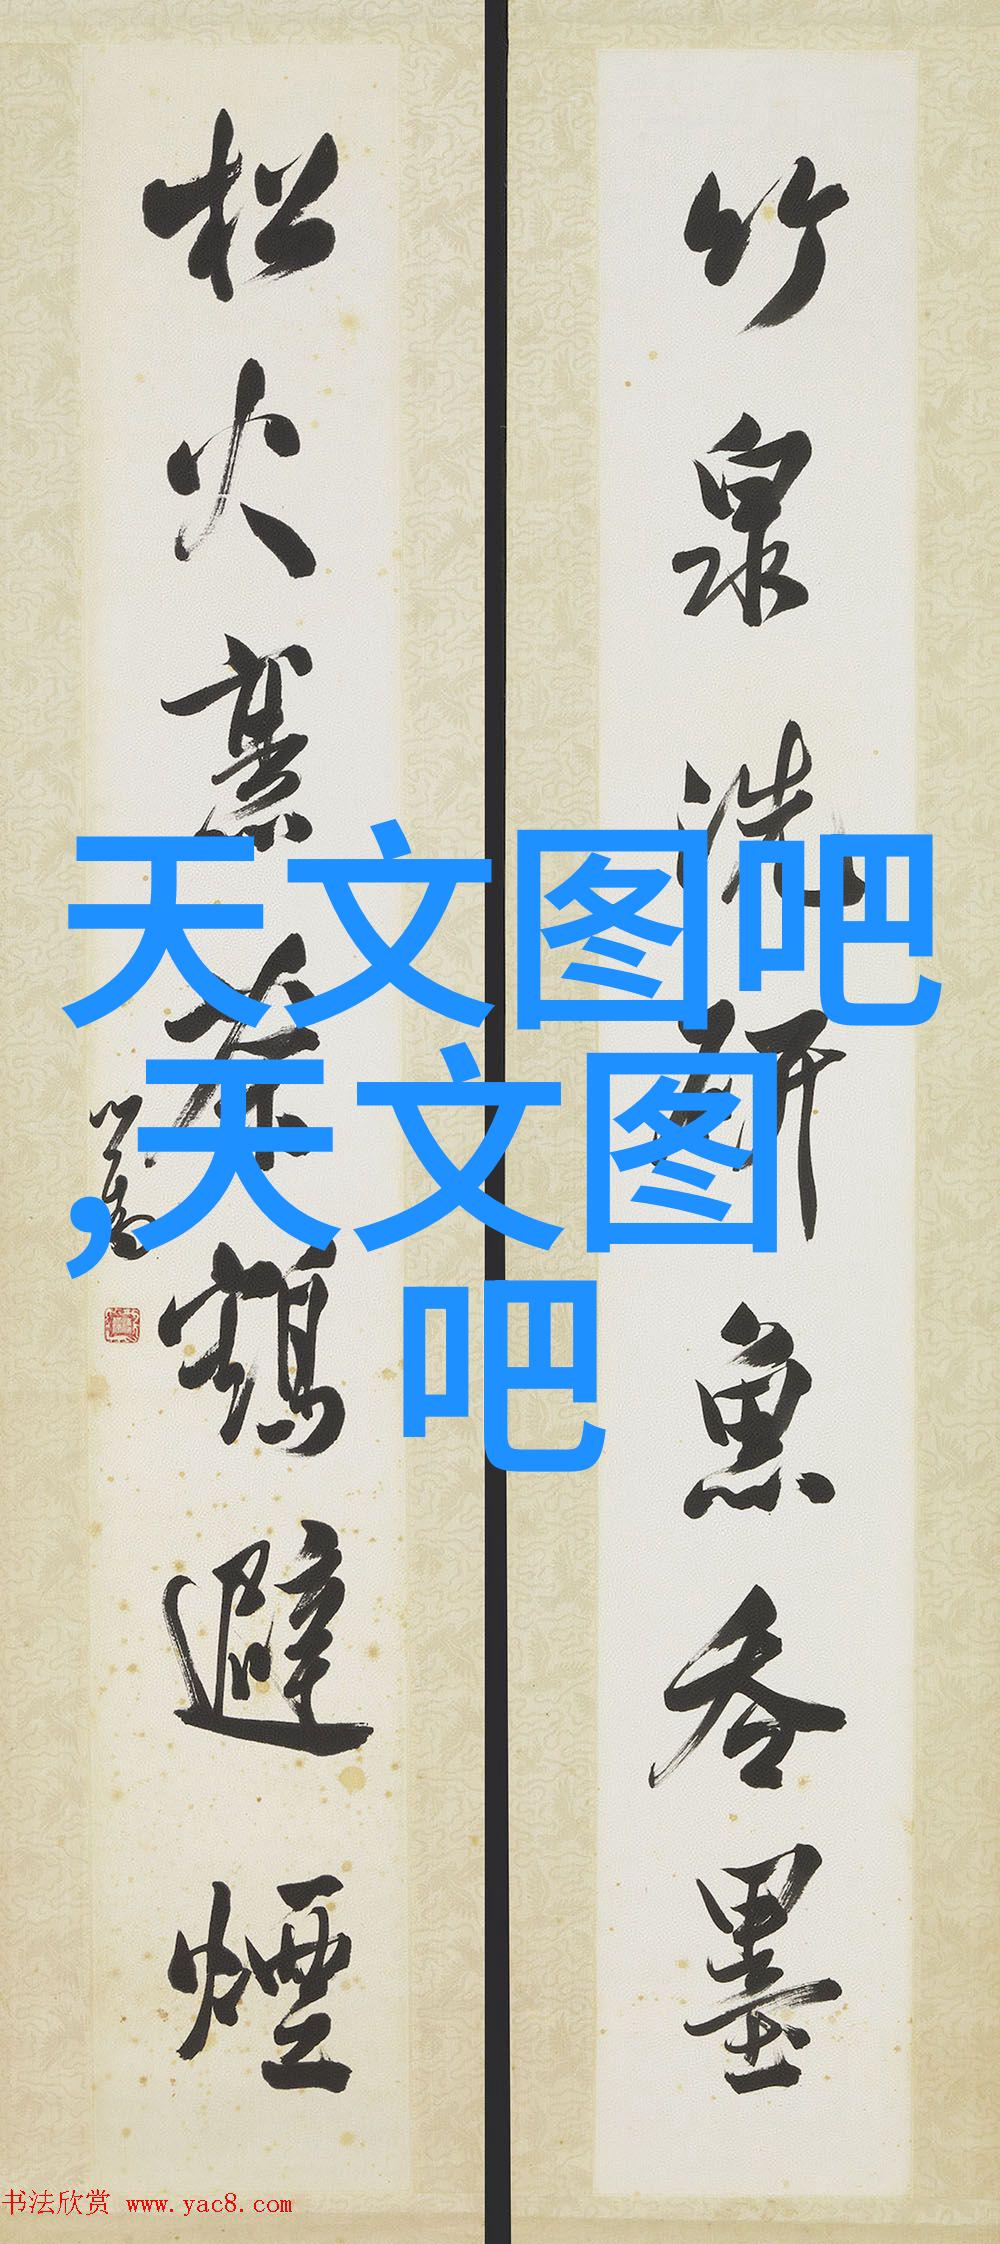 竹泉洗研魚吞墨
松火煮茶鶴避煙
天文图吧
,天文图
吧
书法欣赏 www.yac8.com